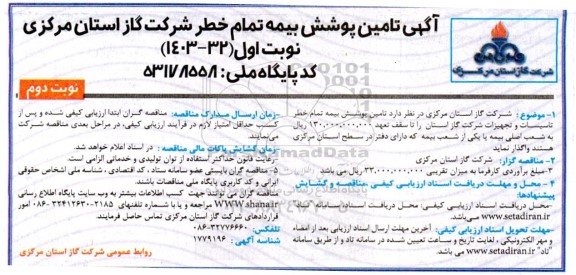 آگهی تامین پوشش بیمه تمام خطر شرکت گاز استان مرکزی
نوبت اول(۳۲-۱۴۰۳)
کد پایگاه ملی: ۵۳۱۷/۱۵۵/۱
نوبت دوم
شرکت گاز استان مرکزی
۱- موضوع : شرکت گاز استان مرکزی در نظر دارد تامین پوشش بیمه تمام خطر
تاسیسات و تجهیزات شرکت گاز استان را تا سقف تعهد ۱۳۰,۰۰۰,۰۰۰,۰۰۰ ریال
به شعب اصلی بیمه یا یکی از شعب بیمه که دارای دفتر در سطح استان مرکزی
هستند واگذار نماید
۲- مناقصه گزار: شرکت گاز استان مرکزی
۳-مبلغ برآوردی کارفرما به میزان تقریبی ۳۳,۰۰۰,۰۰۰,۰۰۰ ریال می باشد
۴ - محل و مهلت دریافت اسناد ارزیابی کیفی ،مناقصه و گشایش
پیشنهادها:
-محل دریافت اسناد ارزیابی کیفی: محل دریافت اسناد، سامانه "ستاد"
www.setadiran.ir می‌باشد.
-مهلت تحویل اسناد ارزیابی کیفی: آخرین مهلت ارسال اسناد ارزیابی بعد از امضاء
و مهر الکترونیکی ، لغایت تاریخ و ساعت تعیین شده در سامانه تاد و از طریق سامانه
"تاد" www.setadiran.ir می باشد
-زمان ارسال مدارک مناقصه: مناقصه گران ابتدا ارزیابی کیفی شده و پس از
کسب حداقل امتیاز لازم در فرآیند ارزیابی کیفی، در مراحل بعدی مناقصه شرکت
می‌نمایند.
-زمان گشایش پاکات مالی مناقصه : در اسناد اعلام خواهد شد.
-رعایت قانون حداکثر استفاده از توان تولیدی و خدماتی الزامی است.
۵- مناقصه گران بایستی عضو سامانه ستاد ، کد اقتصادی ، شناسه ملی اشخاص حقوقی
ایرانی و کد کاربری پایگاه ملی مناقصات باشند.
مناقصه گران می توانند جهت کسب اطلاعات بیشتر به وب سایت پایگاه اطلاع رسانی
WWW.shana.ir مراجعه و یا با شماره تلفنهای ۲۱۸۵-۳۳۲۴۱۲۶۳-۰۸۶ امور
قراردادهای شرکت گاز استان مرکزی تماس حاصل فرمایند.
تلفکس: ۳۲۷۷۶۶۶۰-۰۸۶
شناسه آگهی : ۱۷۷۹۱۹۶
روابط عمومی شرکت گاز استان مرکزی